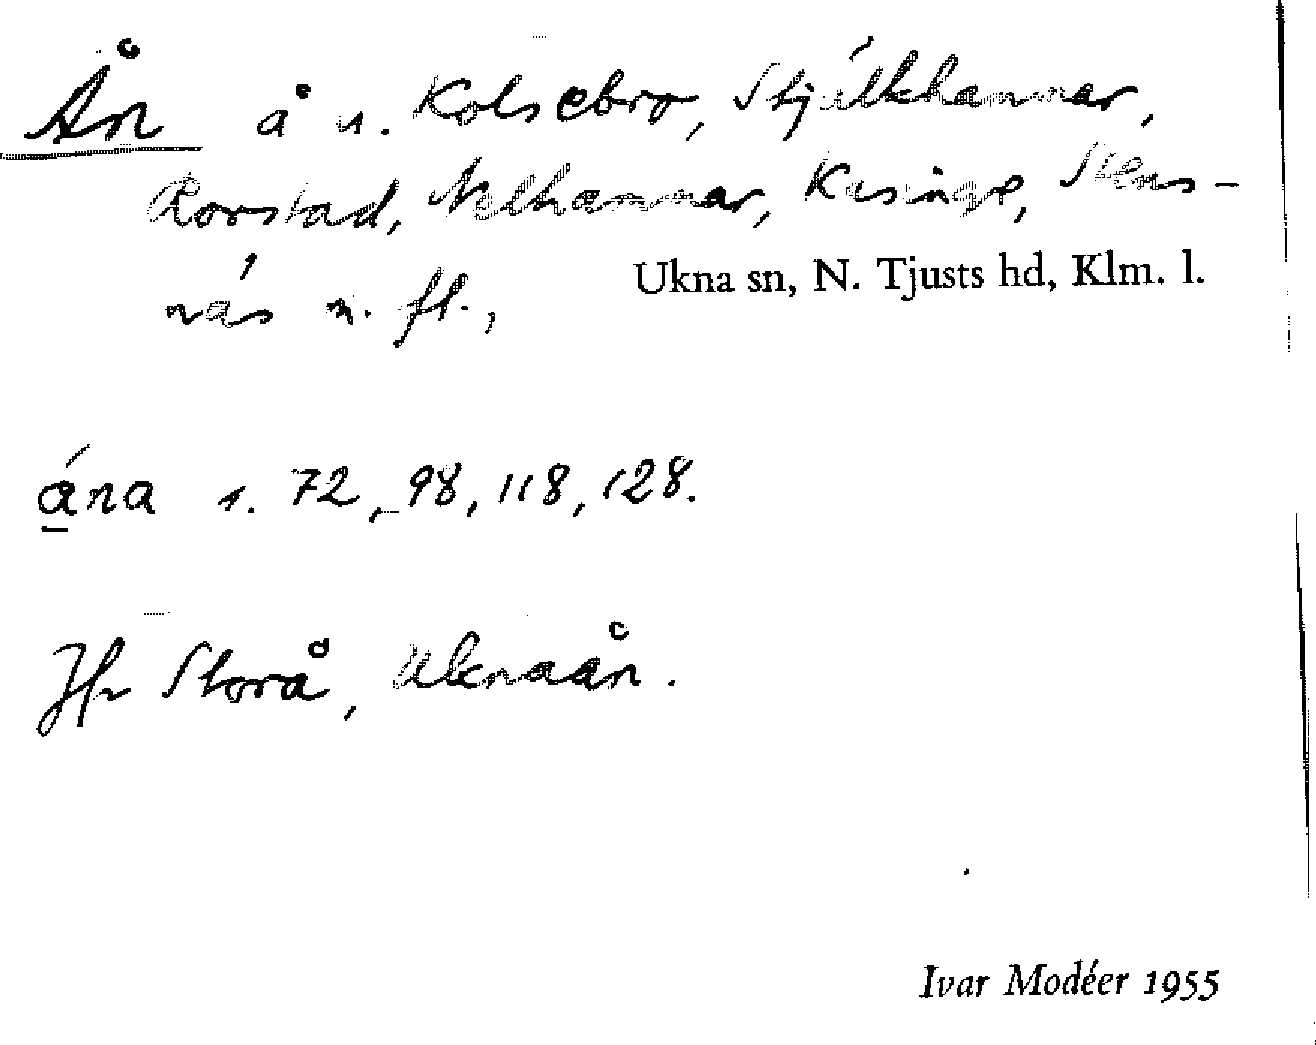 Ån å u. Kolsebro, Stjälkhammar,
Rorstad, Nelhammar, Kasinge, Slus-
näs m. fl., Ukna sn, N. Tjusts hd, Klm. l.
ána s. 72, 98, 118, 128.
Jfr Storå, Uknaån.
Ivar Modéer 1955